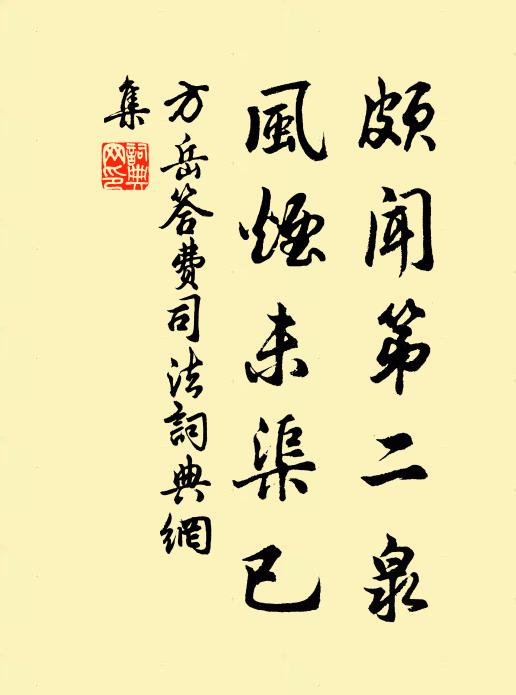 頗聞第二泉
風煙未渠已
方岳答費司法詞典網
集
詞典網印